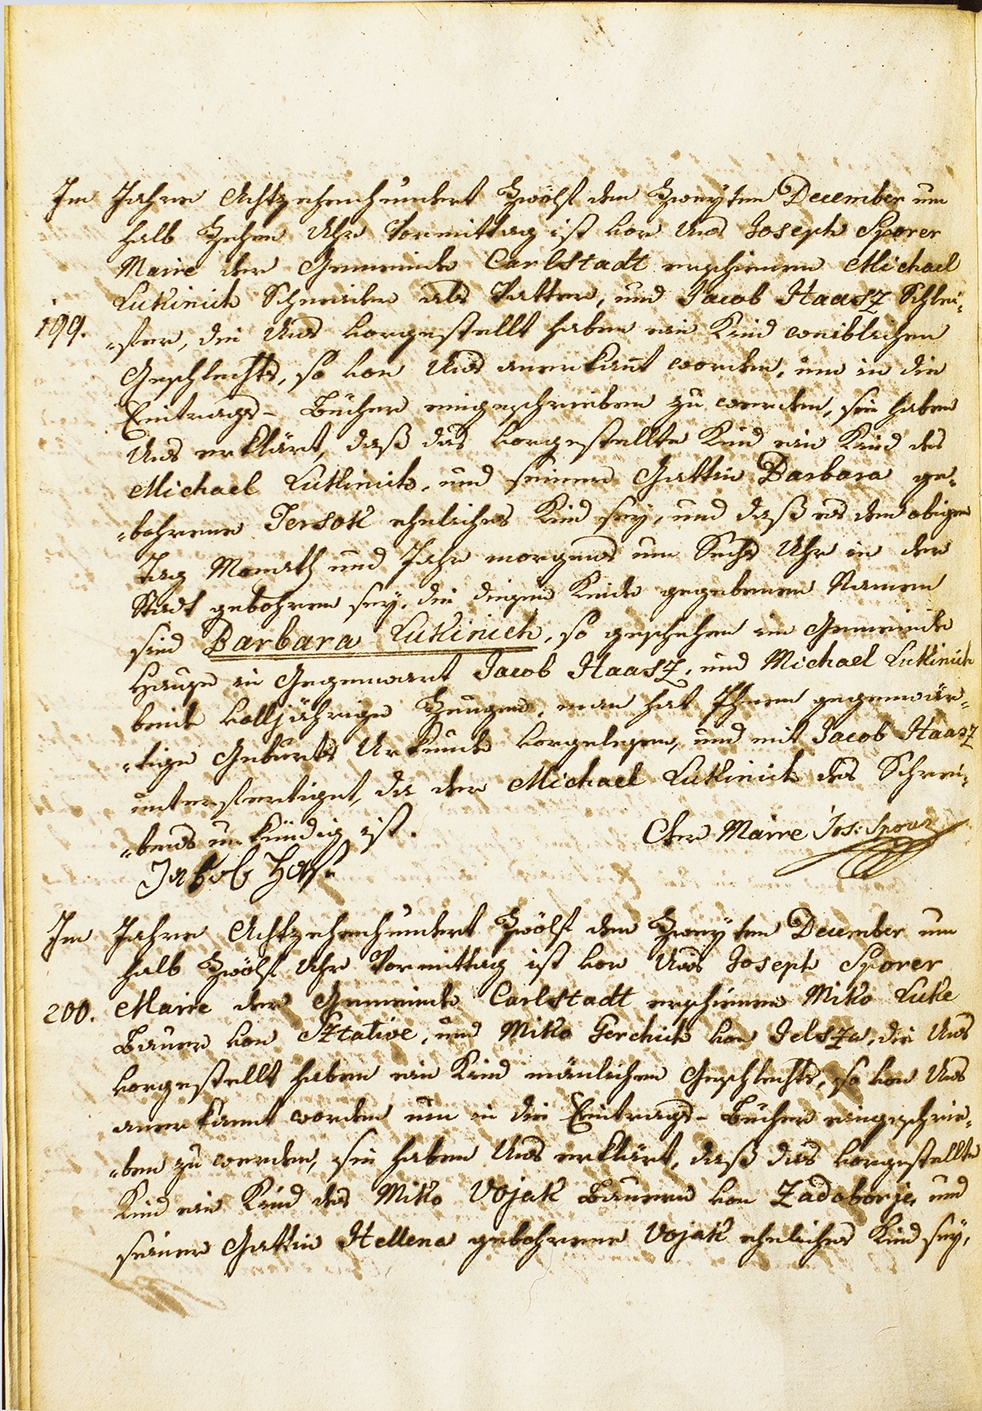 Im Jahre Achtzehenhundert Zwölf den Zweyten December um
halb Zehen Uhr Vormittag ist vor Uns Joseph Sporer
Maire der Gemeinde Carlstadt erschienen Michael
Lukinich Schneider als Vatter, und Jacob Haasz Schlei-
199. -fer, die Uns vorgestellt haben ein Kind weiblichen
Geschlechts, so von Uns anerkant worden, um in die
Eintrags- Bücher eingeschrieben zu werden, sie haben
Uns erklärt, daß das vorgestellte Kind ein Kind des
Michael Lukinich, und seiner Gattin Barbara ge-
-bohrene Tersok eheliches Kind sey, und daß es den obigen
Tag Monath und Jahr morgens um Sechs Uhr in der
Stadt gebohren sey, die diesem Kinde gegebenen Namen
sind Barbara Lukinich, so geschehen im Gemeinde
Hause in Gegenwart Jacob Haasz, und Michael Lukinich
beide volljährige Zeugen, man hat Ihnen gegenwär-
-tige Geburts Urkunde vorgelesen, und mit Jacob Haasz
unterfertiget, da der Michael Lukinich des Schrei-
-bens unkündig ist.
Der Maire Jos: Sporer
Jakob Haß
Im Jahre Achtzehenhundert Zwölf den Zweyten December um
halb Zwölf Uhr Vormittag ist vor Uns Joseph Sporer
200. Maire der Gemeinde Carlstadt erschienen Miko Luke
Bauer von Sztative, und Miko Ferchich von Jelsza, die Uns
vorgestellt haben ein Kind mänlichen Geschlechts, so von Uns
anerkannt worden um in die Eintrags- Bücher eingeschrie-
-ben zu werden, sie haben Uns erklärt, daß das vorgestellte
Kind ein Kind des Miko Vojak Bauern von Zadoborje, und
seiner Gattin Hellena gebohrene Vojak eheliches Kind sey,